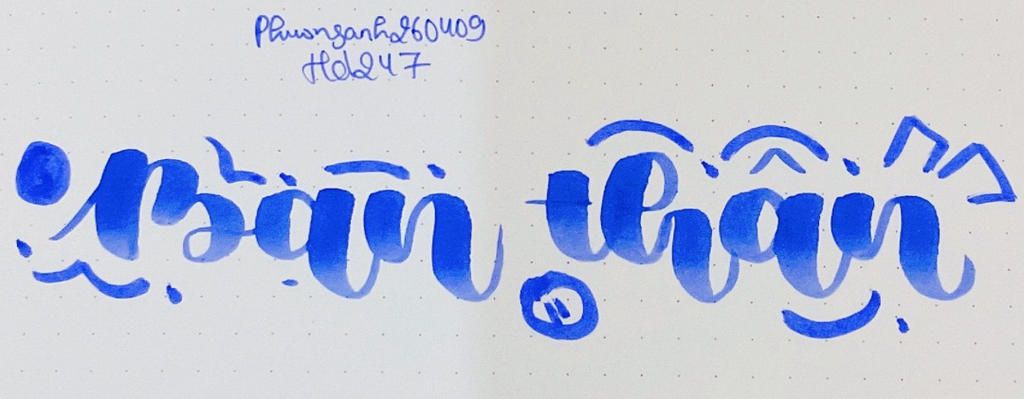 Phuonganh260409
Hd247
Bạn thân